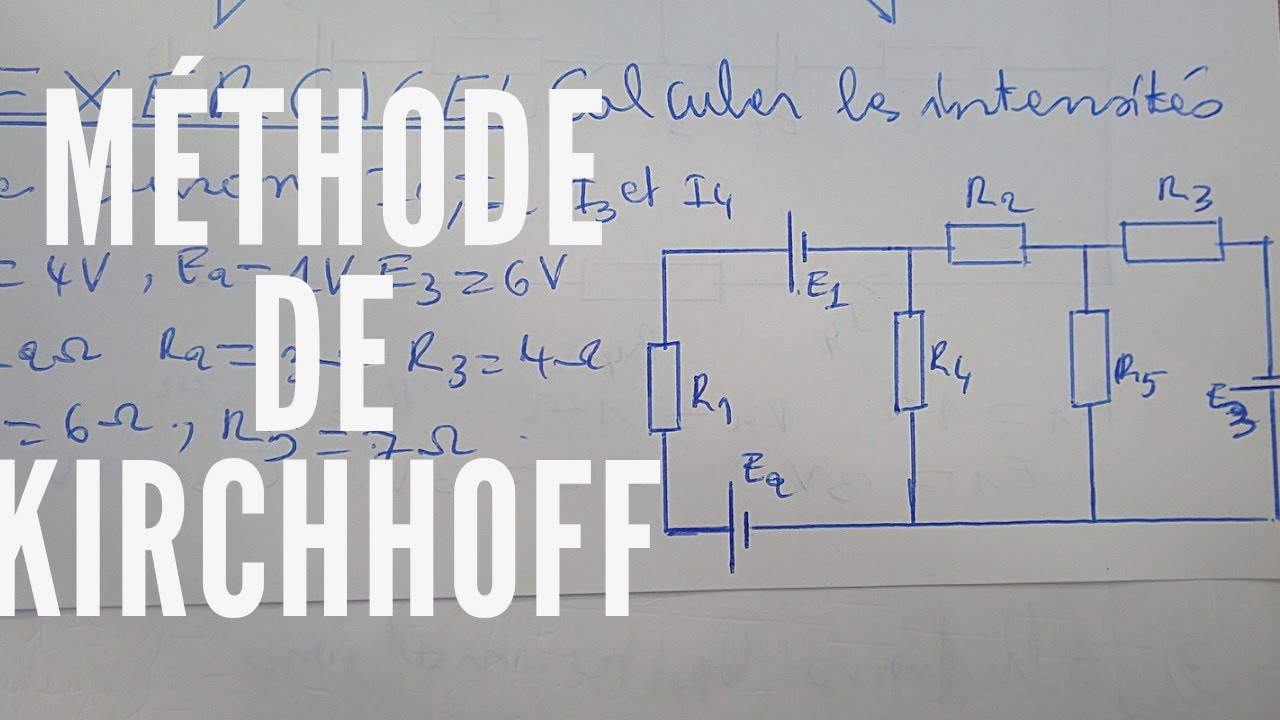 MÉTHODE
DE
KIRCHHOFF
EXERCICE: Calculer les intensités
I3 et I4
= 4V, E2 = 1V E3 = 6V
2Ω R2 = 3Ω R3 = 4Ω
= 6Ω, R5 = 7Ω
R2 R3
E1
R1 R4 R5 E3
E2